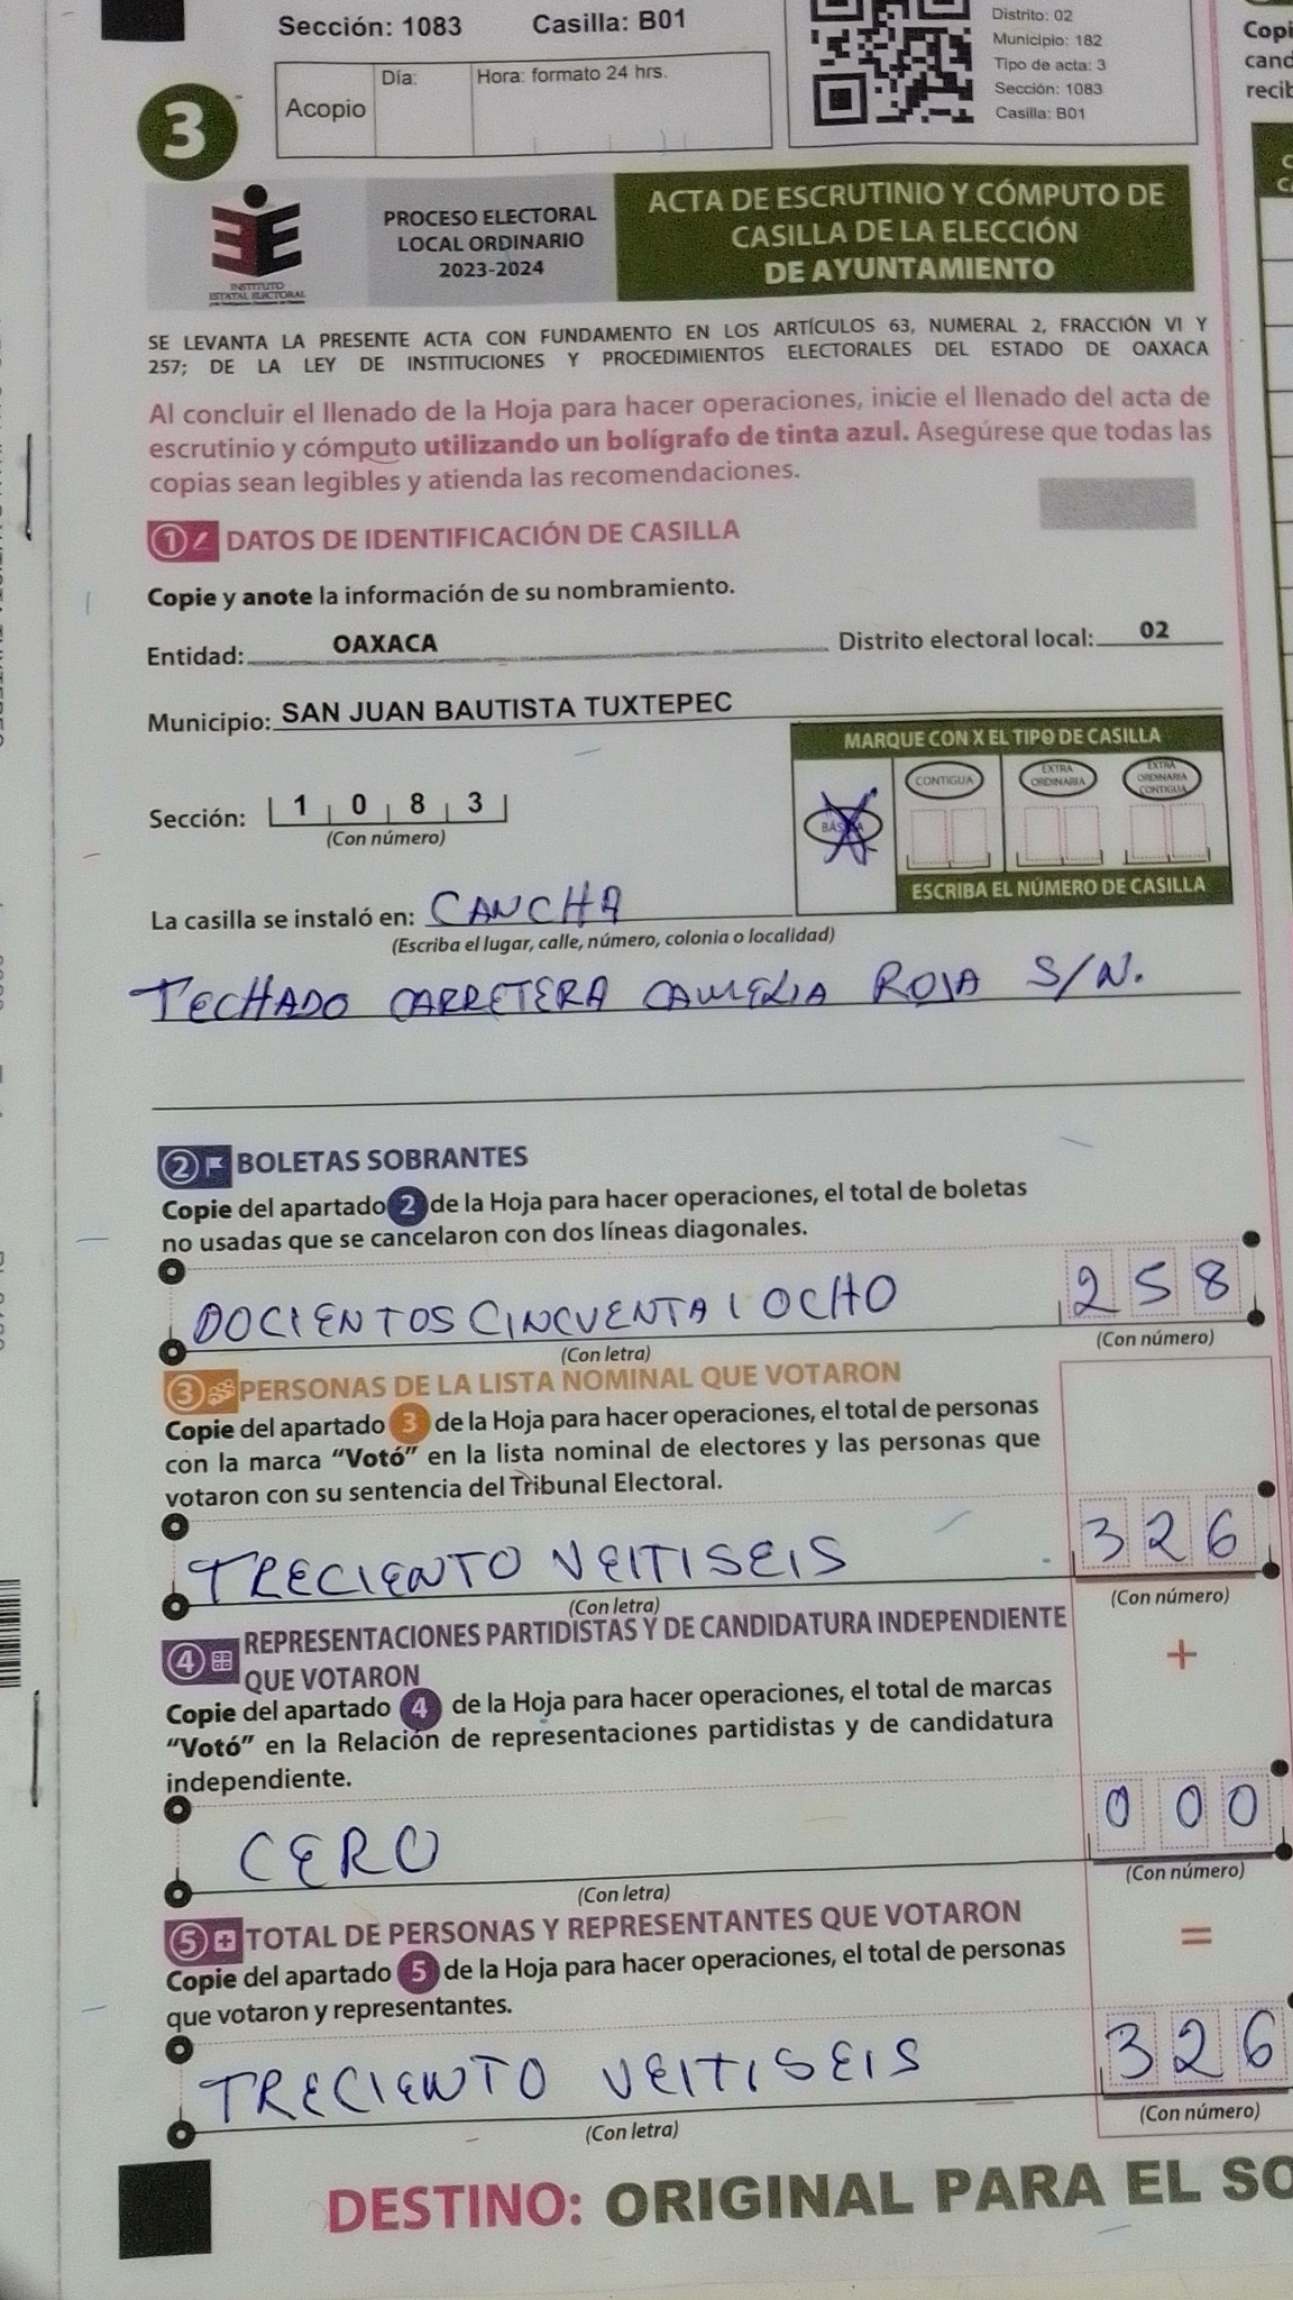 Sección: 1083 Casilla: B01
Distrito: 02
Municipio: 182
Tipo de acta: 3
Sección: 1083
Casilla: B01
Copi
cand
recib
3
Acopio
Día:
Hora: formato 24 hrs.
INSTITUTO
ESTATAL ELECTORAL
PROCESO ELECTORAL
LOCAL ORDINARIO
2023-2024
ACTA DE ESCRUTINIO Y CÓMPUTO DE
CASILLA DE LA ELECCIÓN
DE AYUNTAMIENTO
SE LEVANTA LA PRESENTE ACTA CON FUNDAMENTO EN LOS ARTÍCULOS 63, NUMERAL 2, FRACCIÓN VI Y
257; DE LA LEY DE INSTITUCIONES Y PROCEDIMIENTOS ELECTORALES DEL ESTADO DE OAXACA
Al concluir el llenado de la Hoja para hacer operaciones, inicie el llenado del acta de
escrutinio y cómputo utilizando un bolígrafo de tinta azul. Asegúrese que todas las
copias sean legibles y atienda las recomendaciones.
1 DATOS DE IDENTIFICACIÓN DE CASILLA
Copie y anote la información de su nombramiento.
Entidad: OAXACA Distrito electoral local: 02
Municipio: SAN JUAN BAUTISTA TUXTEPEC
MARQUE CON X EL TIPO DE CASILLA
BÁSICA
CONTIGUA
EXTRA
ORDINARIA
EXTRA
ORDINARIA
CONTIGUA
ESCRIBA EL NÚMERO DE CASILLA
Sección: 1 0 8 3
(Con número)
La casilla se instaló en: CANCHA
(Escriba el lugar, calle, número, colonia o localidad)
TECHADO CARRETERA CAMELIA ROJA S/N.
2 BOLETAS SOBRANTES
Copie del apartado 2 de la Hoja para hacer operaciones, el total de boletas
no usadas que se cancelaron con dos líneas diagonales.
DOCIENTOS CINCUENTA I OCHO 258
(Con letra) (Con número)
3 PERSONAS DE LA LISTA NOMINAL QUE VOTARON
Copie del apartado 3 de la Hoja para hacer operaciones, el total de personas
con la marca “Votó” en la lista nominal de electores y las personas que
votaron con su sentencia del Tribunal Electoral.
TRECIENTO VEITISEIS 326
(Con letra) (Con número)
4 REPRESENTACIONES PARTIDISTAS Y DE CANDIDATURA INDEPENDIENTE
QUE VOTARON
+
Copie del apartado 4 de la Hoja para hacer operaciones, el total de marcas
“Votó” en la Relación de representaciones partidistas y de candidatura
independiente.
CERO 000
(Con letra) (Con número)
5 TOTAL DE PERSONAS Y REPRESENTANTES QUE VOTARON
=
Copie del apartado 5 de la Hoja para hacer operaciones, el total de personas
que votaron y representantes.
TRECIENTO VEITISEIS 326
(Con letra) (Con número)
DESTINO: ORIGINAL PARA EL SO